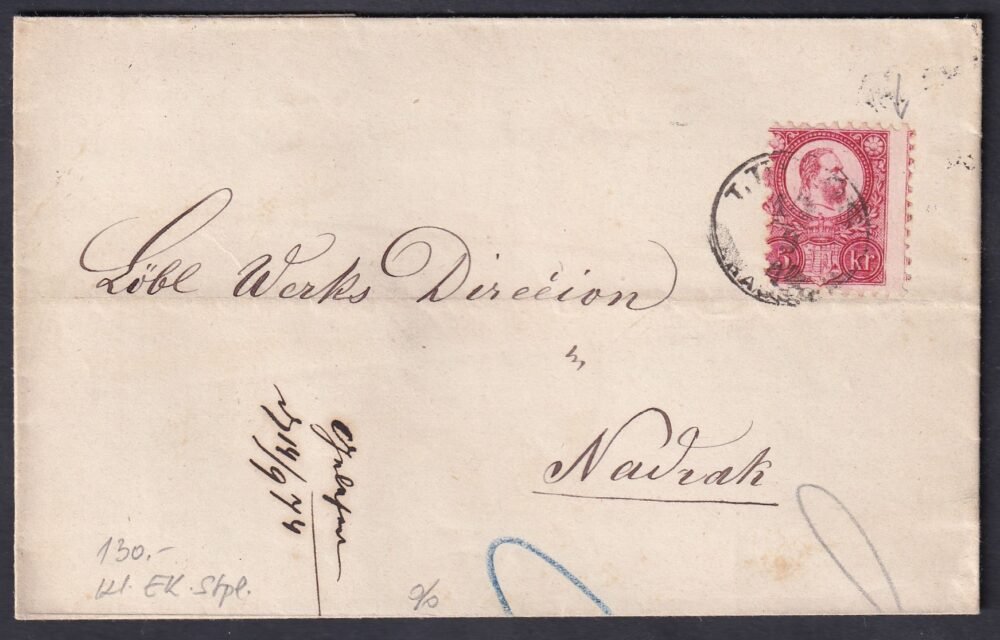 5 Kr
Löbl Werks Direction
in
Nadrak
14/9 74
130.-
kl. EK. Stpl.